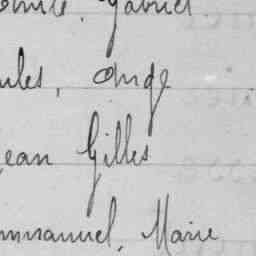 Emile, Gabriel
ules, Ange
Jean Gilles
mmanuel, Marie